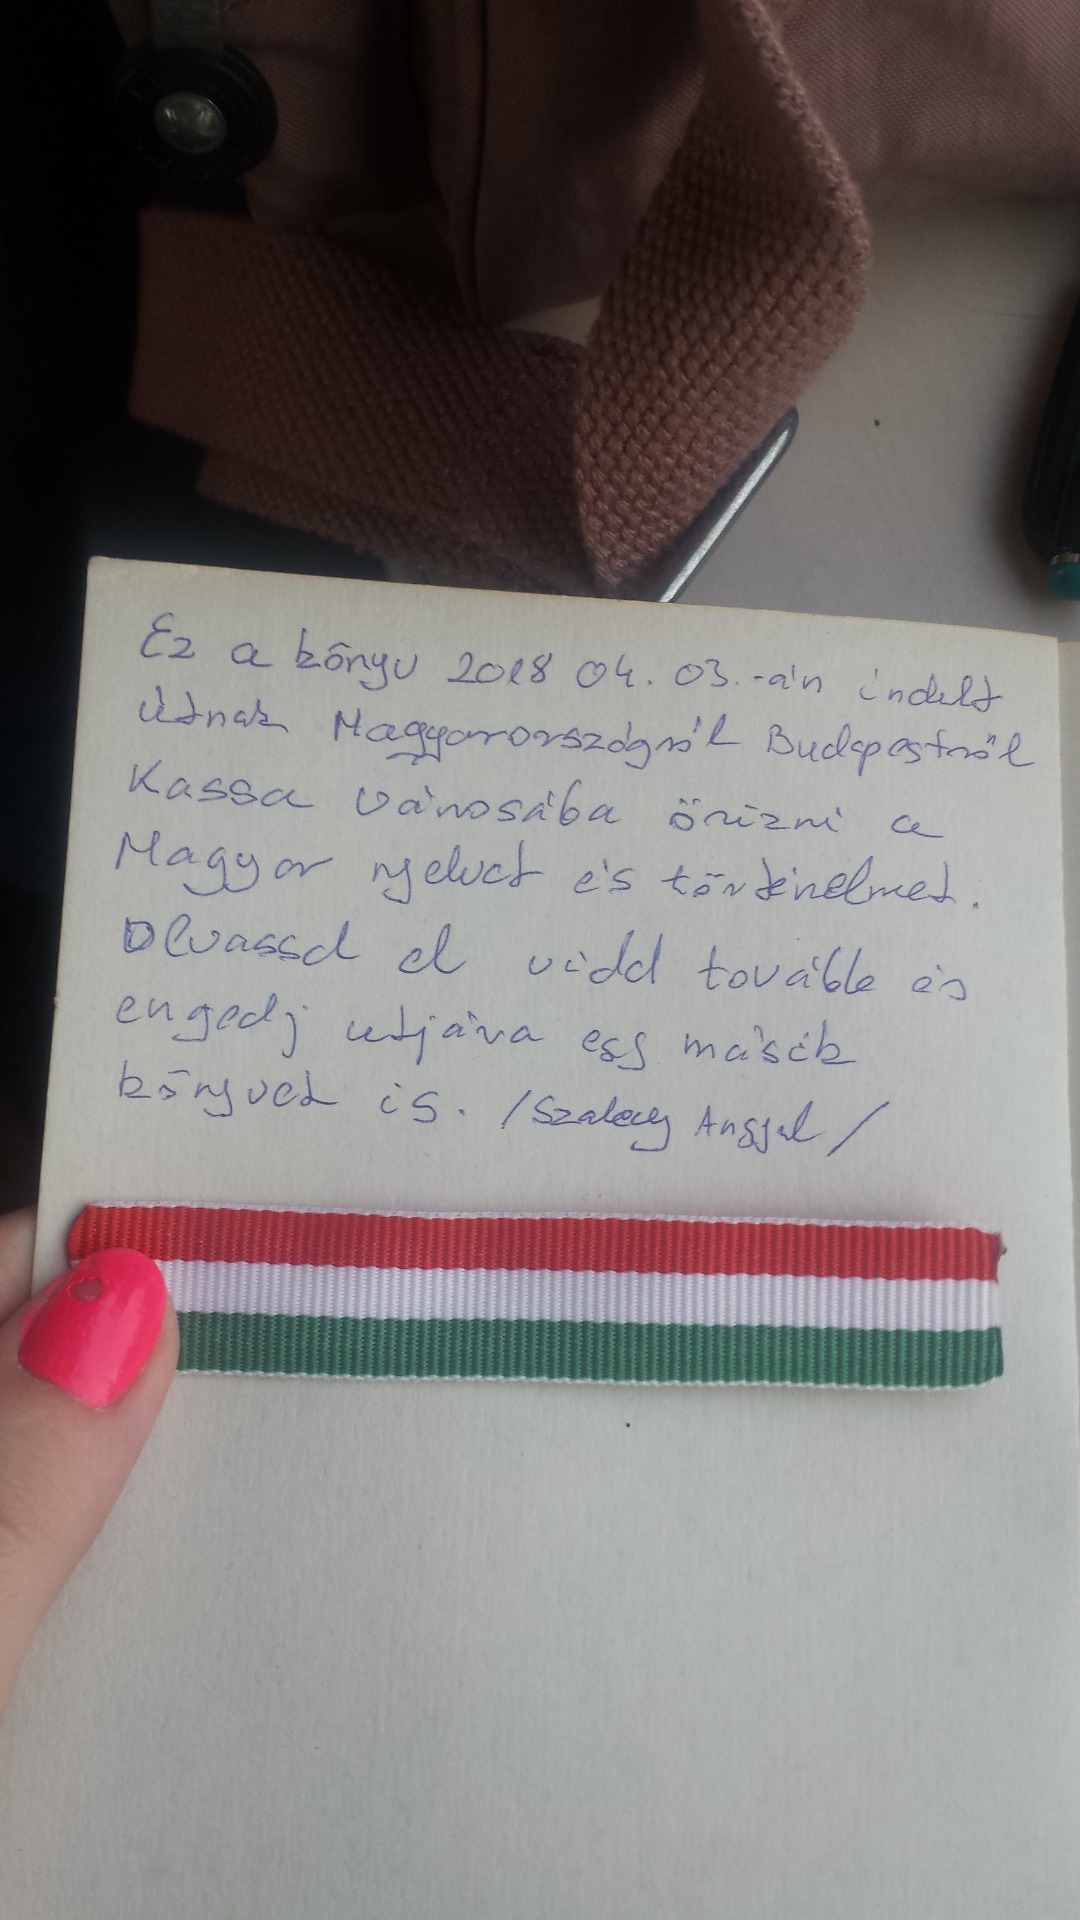 Ez a könyv 2018 04. 03.-án indult
útnak Magyarországról Budapestről
Kassa városába őrizni a
Magyar nyelvet és történelmet.
Olvassd el vidd tovább és
engedj utjára egy másik
könyvet is. / Szalay Angyal /